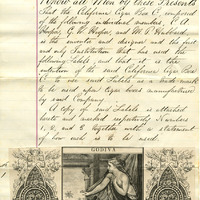 Know all Men by these Presents
That the Californian Cigar Co. composed
of the following individual members, C. A.
Hooper, G. W. Hooper, and M. T. Hubbard
is the inventor and designer and the first
and only Institution that has used the
following label, and that it is the
intention of the said Californian Cigar
Co. to use said Labels as a trade mark
to be used upon Cigar boxes manufactured
by said Company.
A copy of said Labels is attached
hereto and marked respectively Numbers
and 3 together with a statement
of how each is to be used.
GODIVA